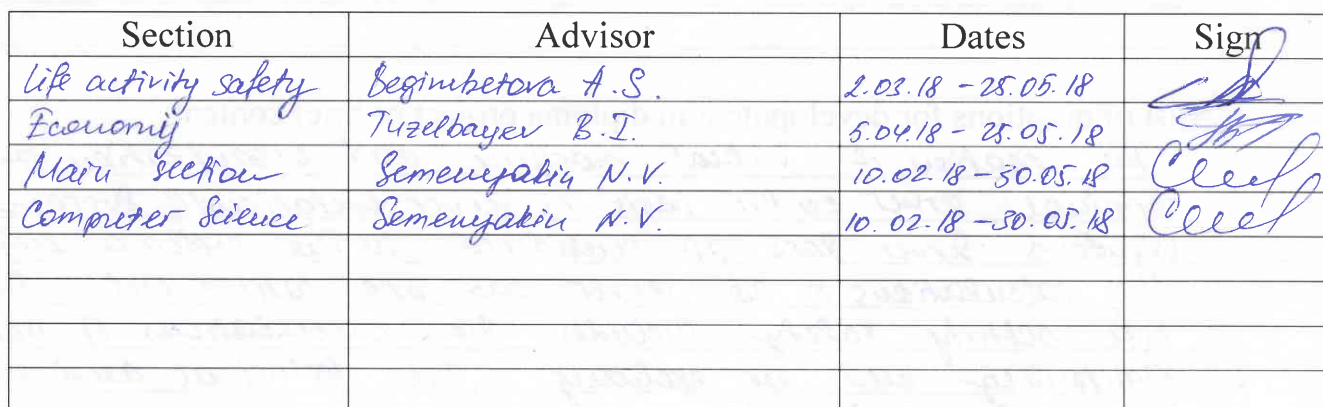 Section Advisor Dates Sign
Life activity safety Begimbetova A.S. 2.03.18 - 25.05.18
Economy Tuzelbayev B.I. 5.04.18 - 25.05.18
Main section Semenyakin N.V. 10.02.18 - 30.05.18
Computer Science Semenyakin N.V. 10.02.18 - 30.05.18